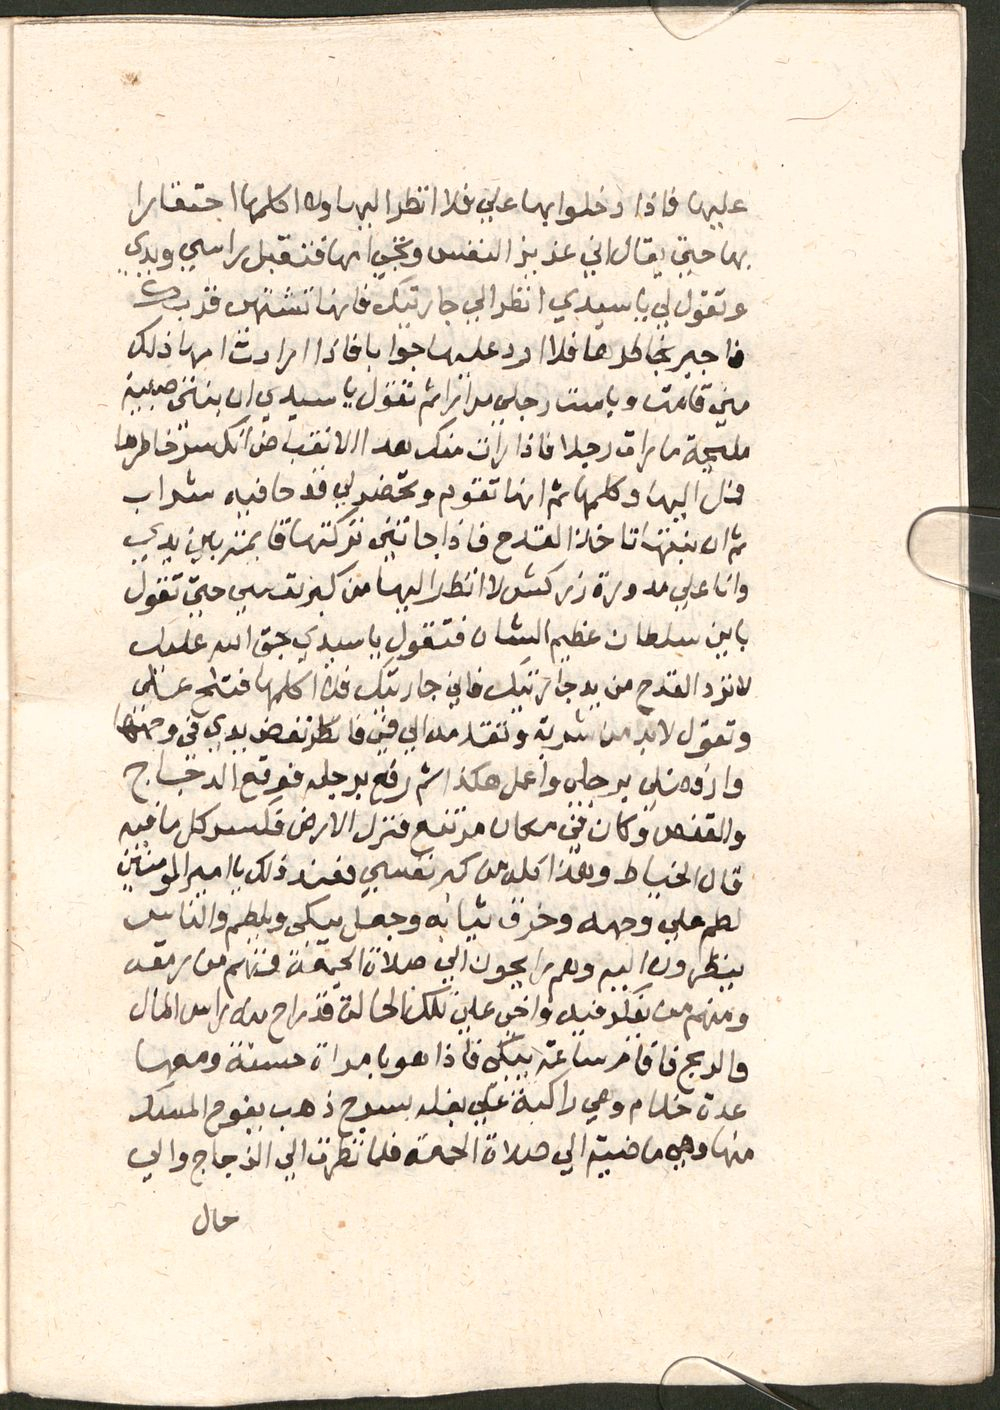 عليها فاذا دخلوا بها علي فلا انظر اليها ولا اكلمها احتقارا
بها حتي يقال اني عزيز النفس وتجي امها فتقبل راسي ويدي
وتقول لي يا سيدي انظر الي جاريتك فانها تشتهي قربك
فاجبر بخاطرها فلا ارد عليها جوابا فاذا رادت امها ذلك
مني قامت وباست رجلي مرارا ثم تقول يا سيدي ان بنتي صبية
مليحة ما رات رجلا فاذا رات منك هذا الانقباض انكسر خاطرها
فمل اليها وكلمها ثم انها تقوم وتحضر لي قدحا فيه شراب
ثم ان بنتها تاخذ القدح فاذا جاتني تركتها قايمة بين يدي
وانا علي مدورة زركش لا انظر اليها من كبر نفسي حتي تقول
باين سلطان عظيم الشان فتقول يا سيدي بحق الله عليك
لا ترد القدح من يد جاريتك فاني جاريتك فلا اكلمها فتلح علي
وتقول لابد من شربه وتقدمه الي فمي فانفض يدي في وجهها
وارفصها برجلي واعمل هكذا ثم رفص برجله فوقع الزجاج
والقفص وكان في مكان مرتفع فنزل الارض فكسر كل ما فيه
قال الخياط وهذا كله من كبر نفسي فعند ذلك يا امير المومنين
لطم علي وجهه وخرق ثيابه وجعل يبكي ويلطم والناس
ينظرون اليه وهم رايحون الي صلاة الجمعة فمنهم من يرمقه
ومنهم من يفكر فيه واخي علي تلك الحالة قد راح منه راس المال
والربح فاقام ساعة يبكي فاذا هو بامراة حسنة ومعها
عدة خدام وهي راكبة علي بغله بسرج ذهب يفوح المسك
منها وهي ماضية الي صلاة الجمعة فلما نظرت الي الزجاج والي
حال